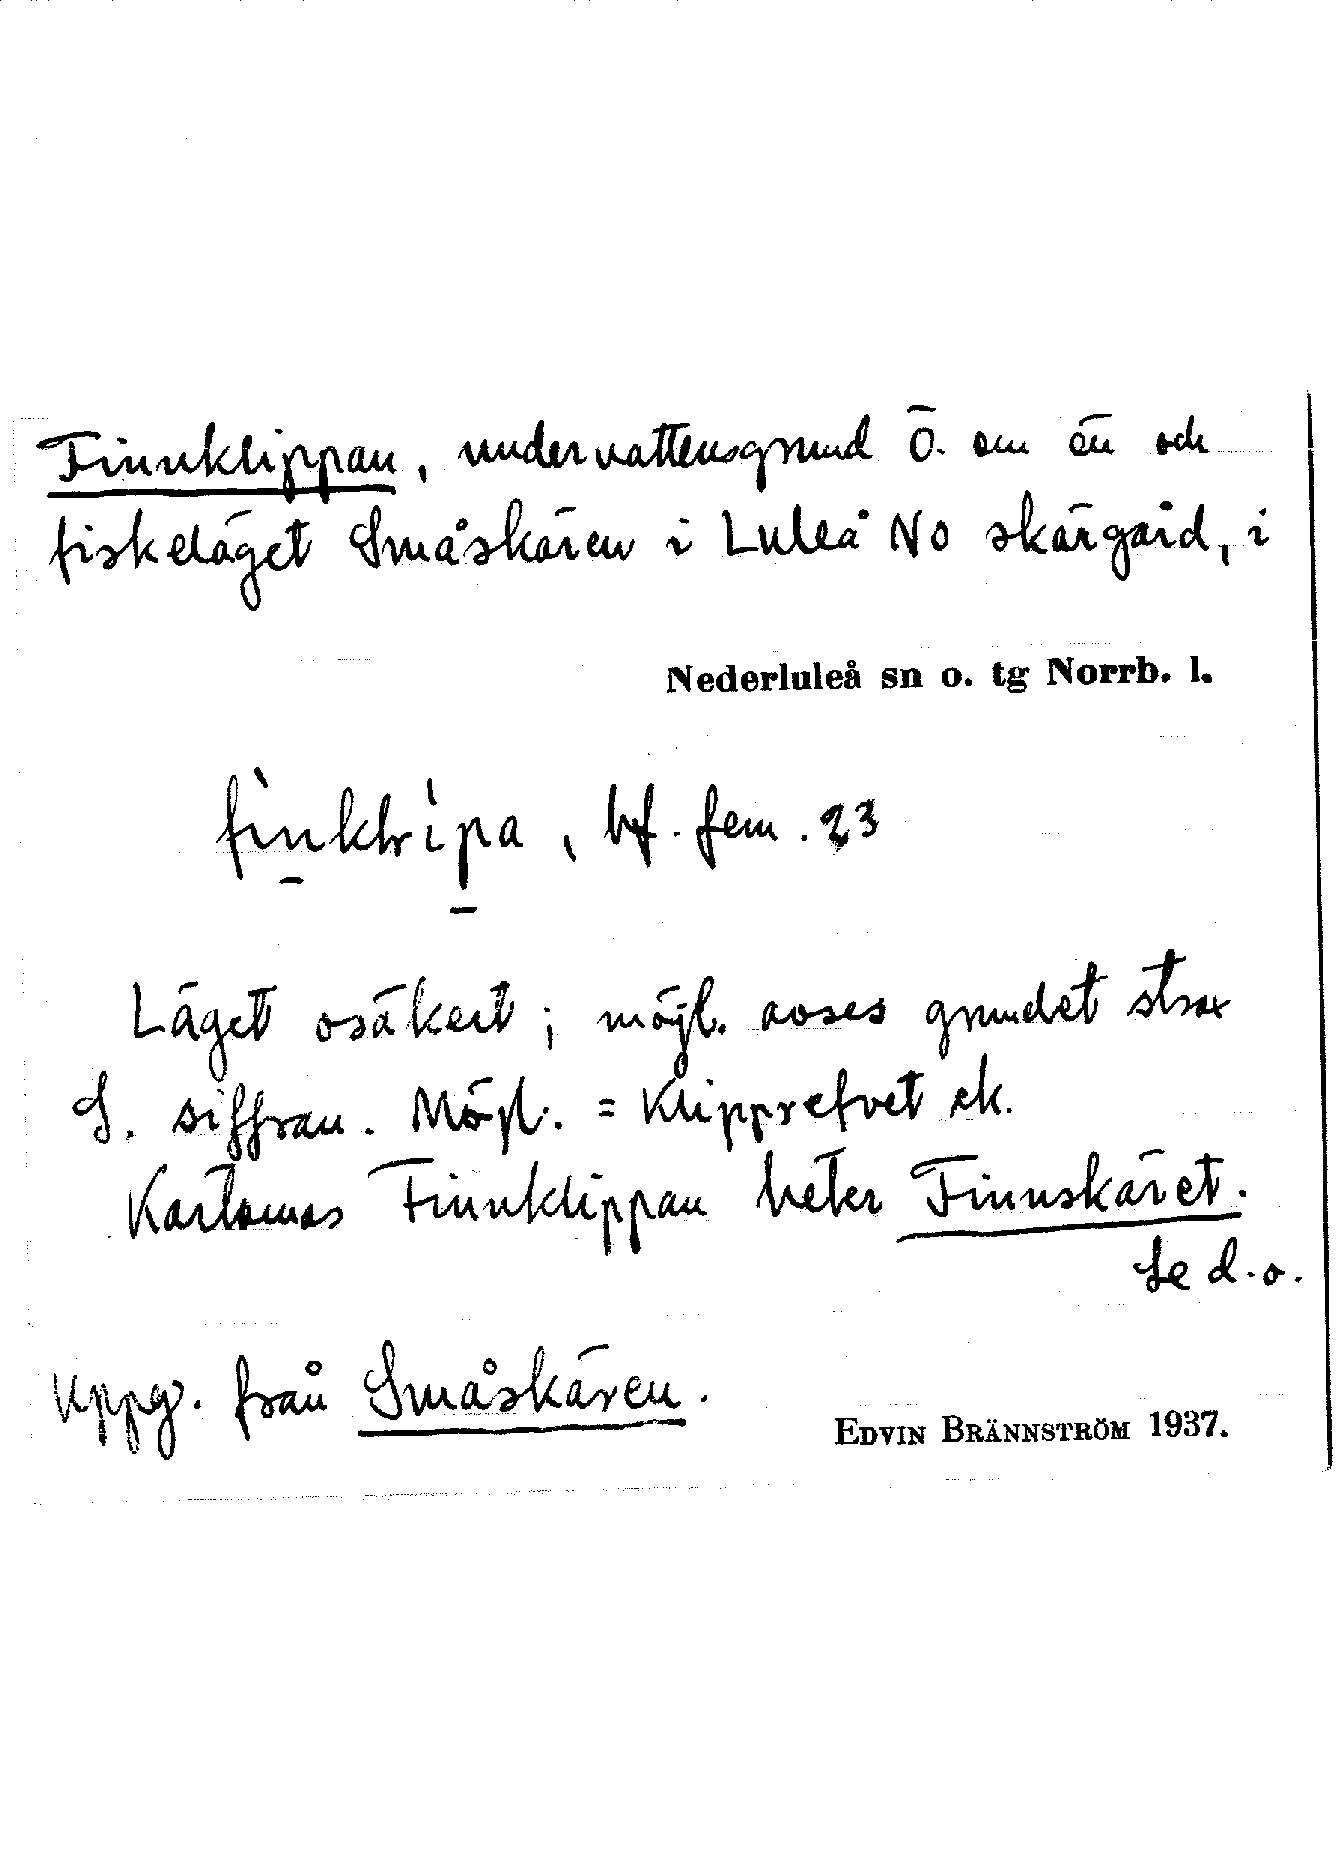 Finnklippan, undervattensgrund Ö. om ön och
fiskeläget Småskären i Luleå No skärgård, i
Nederluleå sn o. tg Norrb. l.
bf. fem. 23
Läget osäkert; möjl. avses grundet strax
S. siffran. Möjl. = Klipprefvet ek.
Kartornas Finnklippan heter Finnskäret.
Se d.o.
Uppg. från Småskären.
EDVIN BRÄNNSTRÖM 1937.